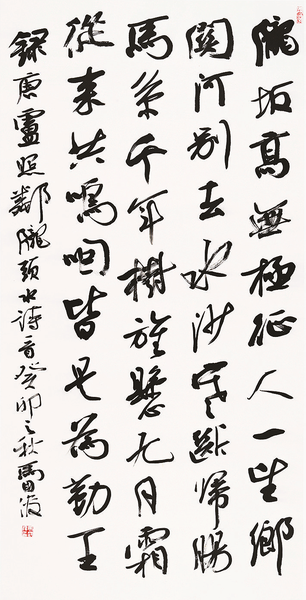 隴坂高無極征人一望鄉
關河別去水沙塞斷歸腸
馬系千年樹旌懸九月霜
從來共嗚咽皆是為勤王
錄唐盧照鄰隴頭水詩一首癸卯之秋馬